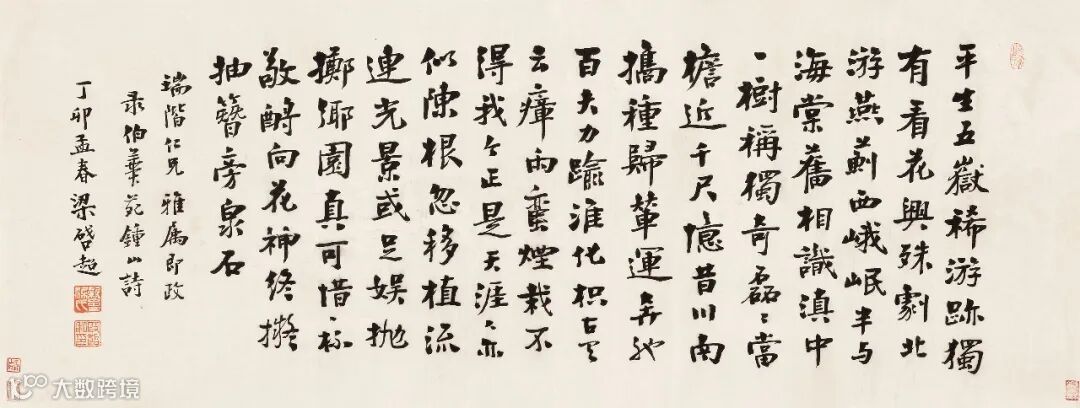 平生五嶽稀游跡獨
有看花興殊劇北
游燕薊西峨岷半与
海棠舊相識滇中
一樹稱獨奇磊〻當
檐近千尺憶昔川南
攜種歸輦運
百夫力踰淮化枳古
云瘴雨蠻煙栽不
得我今正是天涯亦
似陳根忽移植流
連光景或足娱抛
擲鄉園真可惜杯
敬酹向花神終擬
抽簪旁泉石
瑞階仁兄 雅属即政
录伯苑鍾山詩
丁卯孟春梁啓超
大数跨境